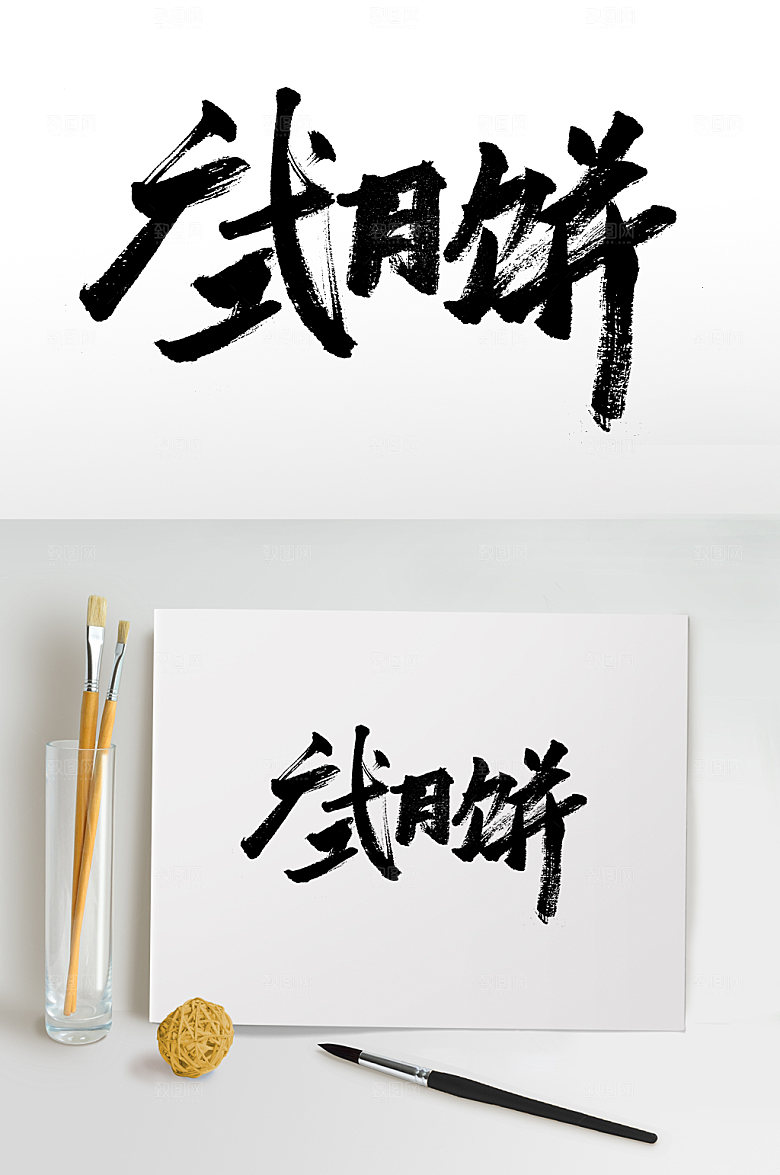 广式月饼
广式月饼